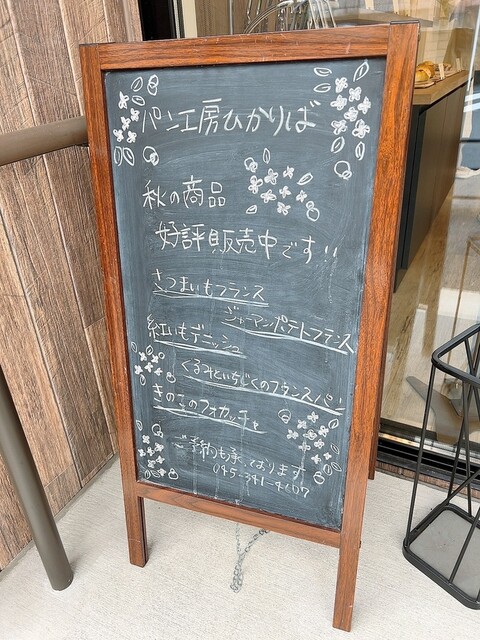 パン工房ひかりば
秋の商品
好評販売中です!!
さつまいもフランス
ジャーマンポテトフランス
紅いもデニッシュ
くるみといちじくのフランスパン
きのこのフォカッチャ
ご予約も承っております
045-341-4607